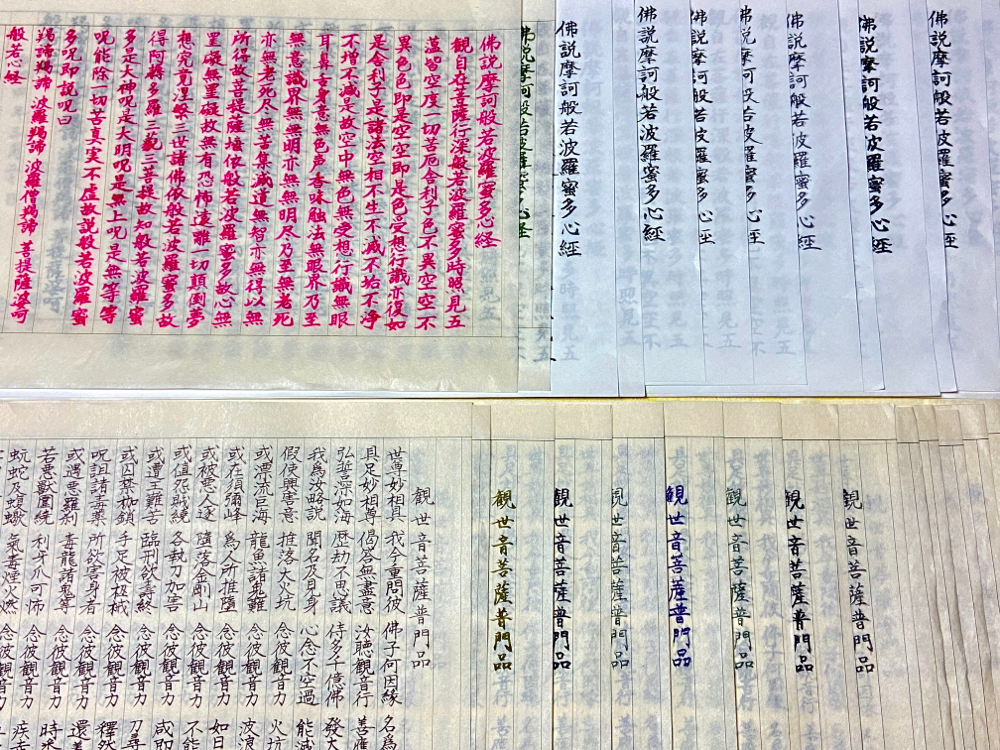 佛説摩訶般若波羅蜜多心経
佛説摩訶般若波羅蜜多心経
佛説摩訶般若波羅蜜多心経
佛説摩訶般若波羅蜜多心経
佛説摩訶般若波羅蜜多心経
佛説摩訶般若波羅蜜多心経
佛説摩訶般若波羅蜜多心経
佛説摩訶般若波羅蜜多心経
佛説摩訶般若波羅蜜多心経
観自在菩薩行深般若波羅蜜多時照見五
蘊皆空度一切苦厄舎利子色不異空空不
異色色即是空空即是色受想行識亦復如
是舎利子是諸法空相不生不滅不垢不浄
不増不減是故空中無色無受想行識無眼
耳鼻舌身意無色声香味触法無眼界乃至
無意識界無無明亦無無明尽乃至無老死
亦無老死尽無苦集滅道無智亦無得以無
所得故菩提薩埵依般若波羅蜜多故心無
罣礙無罣礙故無有恐怖遠離一切顛倒夢
想究竟涅槃三世諸佛依般若波羅蜜多故
得阿耨多羅三藐三菩提故知般若波羅蜜
多是大神呪是大明呪是無上呪是無等等
呪能除一切苦真実不虚故説般若波羅蜜
多呪即説呪曰
羯諦羯諦 波羅羯諦 波羅僧羯諦 菩提薩婆呵
般若心経
観世音菩薩普門品
観世音菩薩普門品
観世音菩薩普門品
観世音菩薩普門品
観世音菩薩普門品
観世音菩薩普門品
観世音菩薩普門品
観世音菩薩普門品
世尊妙相具 我今重問彼 佛子何因縁 名為
具足妙相尊 偈答無盡意 汝聴観音行 善應
弘誓深如海 歴劫不思議 侍多千億佛 發大
我為汝略説 聞名及見身 心念不空過 能滅
假使興害意 推落大火坑 念彼観音力 火坑
或漂流巨海 龍魚諸鬼難 念彼観音力 波浪
或在須彌峰 為人所推墮 念彼観音力 如日
或被悪人逐 墮落金剛山 念彼観音力 不能
或値怨賊繞 各執刀加害 念彼観音力 咸即
或遭王難苦 臨刑欲壽終 念彼観音力 刀尋
或囚禁枷鎖 手足被杻械 念彼観音力 釋然
呪詛諸毒藥 所欲害身者 念彼観音力 還
或遇悪羅刹 毒龍諸鬼等 念彼観音力 時悉
若悪獣圍繞 利牙爪可怖 念彼観音力 疾走
蚖蛇及蝮蠍 氣毒煙火燃 念彼観音力